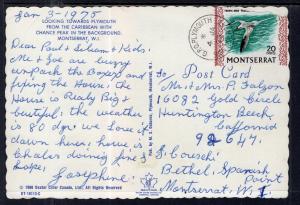 Jan 3-1975
LOOKING TOWARDS PLYMOUTH
FROM THE CARIBBEAN WITH
CHANCE PEAK IN THE BACKGROUND.
MONTSERRAT, W.I.
Dear Paul & & Kids.
Me & Zoe are bugry
unPack the Boxes and
fixing the House: the
House is Realy Big &
beutiful: the weather
is 80 dgr: we Love it
dawn here: howe is
Chales doing fine I
hope:
Josephine
© 1969 Dexter Color Canada, Ltd.
DT-18212-C
MONTSERRAT, W.I.
G.P.O. PLYMOUTH
20
MONTSERRAT
Post Card
To
Mr. & Mrs. P. Falzon
16082 Gold Circle
Huntington Beach,
California
92647.
Bethel: Spanish
Point
Montserrat, W.I